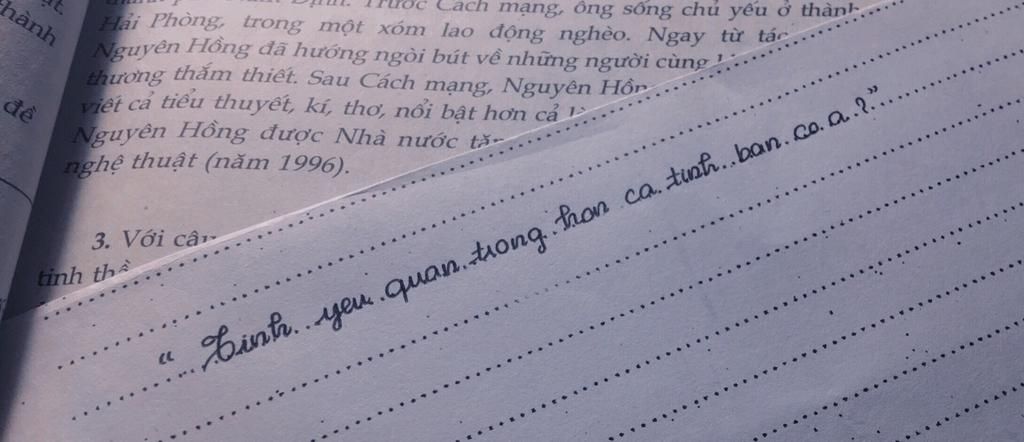 Trước Cách mạng, ông sống chủ yếu ở thành
Hải Phòng, trong một xóm lao động nghèo. Ngay từ tác
Nguyên Hồng đã hướng ngòi bút về những người cùng
thương thắm thiết. Sau Cách mạng, Nguyên Hồn
viết cả tiểu thuyết, kí, thơ, nổi bật hơn cả
Nguyên Hồng được Nhà nước
nghệ thuật (năm 1996).
3. Với câu
tinh
đề
"Tinh yeu quan trong hon ca tinh ban co a ?"